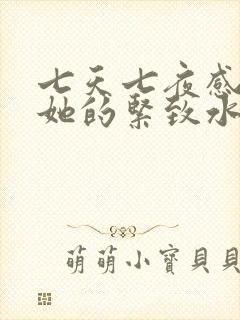 七天七夜感
她的紧致水
萌萌小寶貝貝